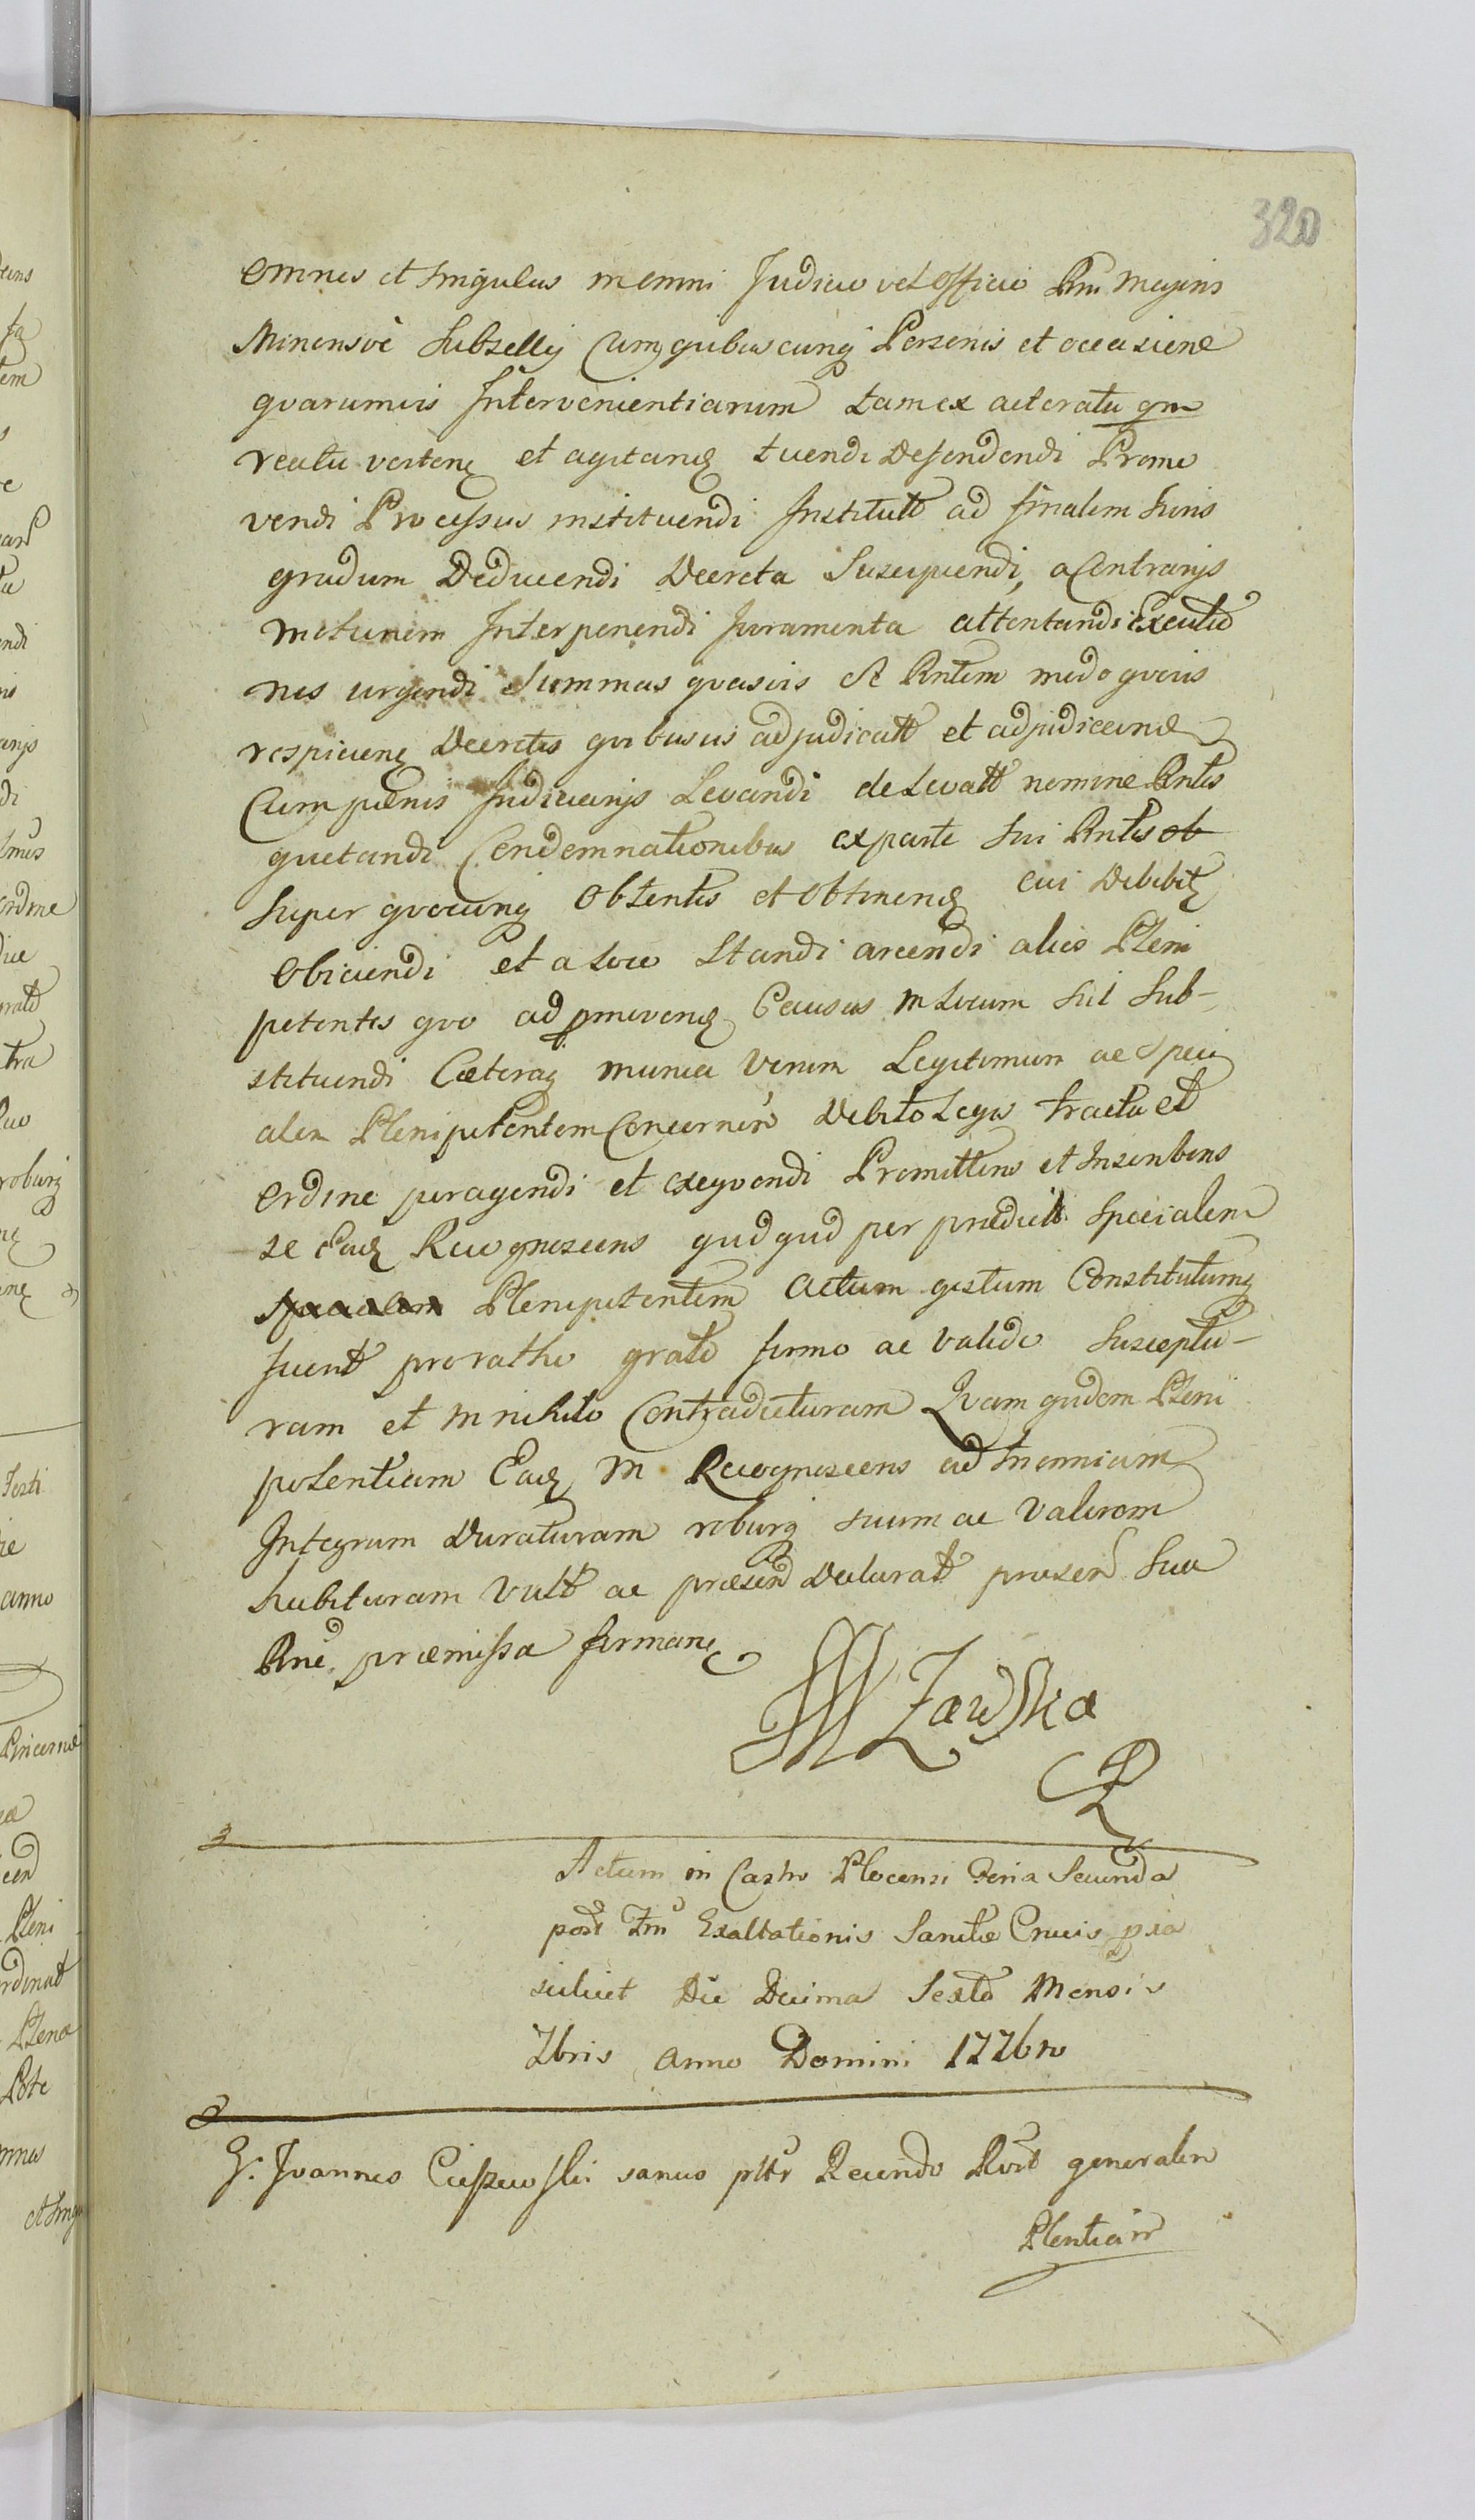 320
omnes et singulas in omni Judicio vel officio Rni Majoris
Minorisve Subsellij Cum quibuscunq Personis et occasione
quarumvis Intervenientiarum tam ex actoratu qm
reatu verteñ et agitanđ tuendi Defendendi Promo
vendi Processus instituendi Institutt ad finalem Juris
gradum Deducendi Decreta Suscipiendi, a Contrarijs
motionem Interponendi Juramenta attentandi Executio
nes urgendi Summas quasvis SR Rntem modo quovis
respicienđ Decretis quibusvis adjudicatt et adjudicanđ
Cum pœnis Judiciarijs Levandi de Levatt nomine Rntis
quietandi Condemnationibus ex parte sui Rntis ob
super quocunq Obtentis et obtinenđ cui Debebit
obiciendi et a loco Standi arcendi alios Pleni
potentes quo ad pmovenđ Causas in Locum sui Sub-
stituendi Cœteraq munia Verum Legitimum ac Speci
alem Plenipotentem Concernen Debito Legis tractu et
ordine peragendi et exequendi Promittens et Inscribens
se Eadq Recognoscens quidquid per prædictt Specialem
Plenipotentem actum gestum Constitutumq
fuerit pro ratho grato firmo ac valido Susceptu-
ram et in nihilo Contradicturam Quam quidem Pleni
potentiam Eadq M Recognoscens ad Triennium
Integrum Duraturam roburq suum ac Valorem
habituram Vult ac præsen Declarat præsen Sua
Rne præmissa firmanđ
Zawska
Actum in Castro Plocensi Feria Secunda
post Fm Exaltationis Sanctæ Crucis pxa
scilicet Die Decima Sexta Mensis
7bris Anno Domini 1776to
G. Joannes Cieszewski sanus pttr Recendo Rvit generalem
Plentiam